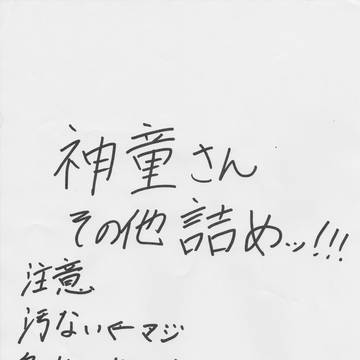 神童さん
その他詰めッ!!!
注意
汚ない←マジ